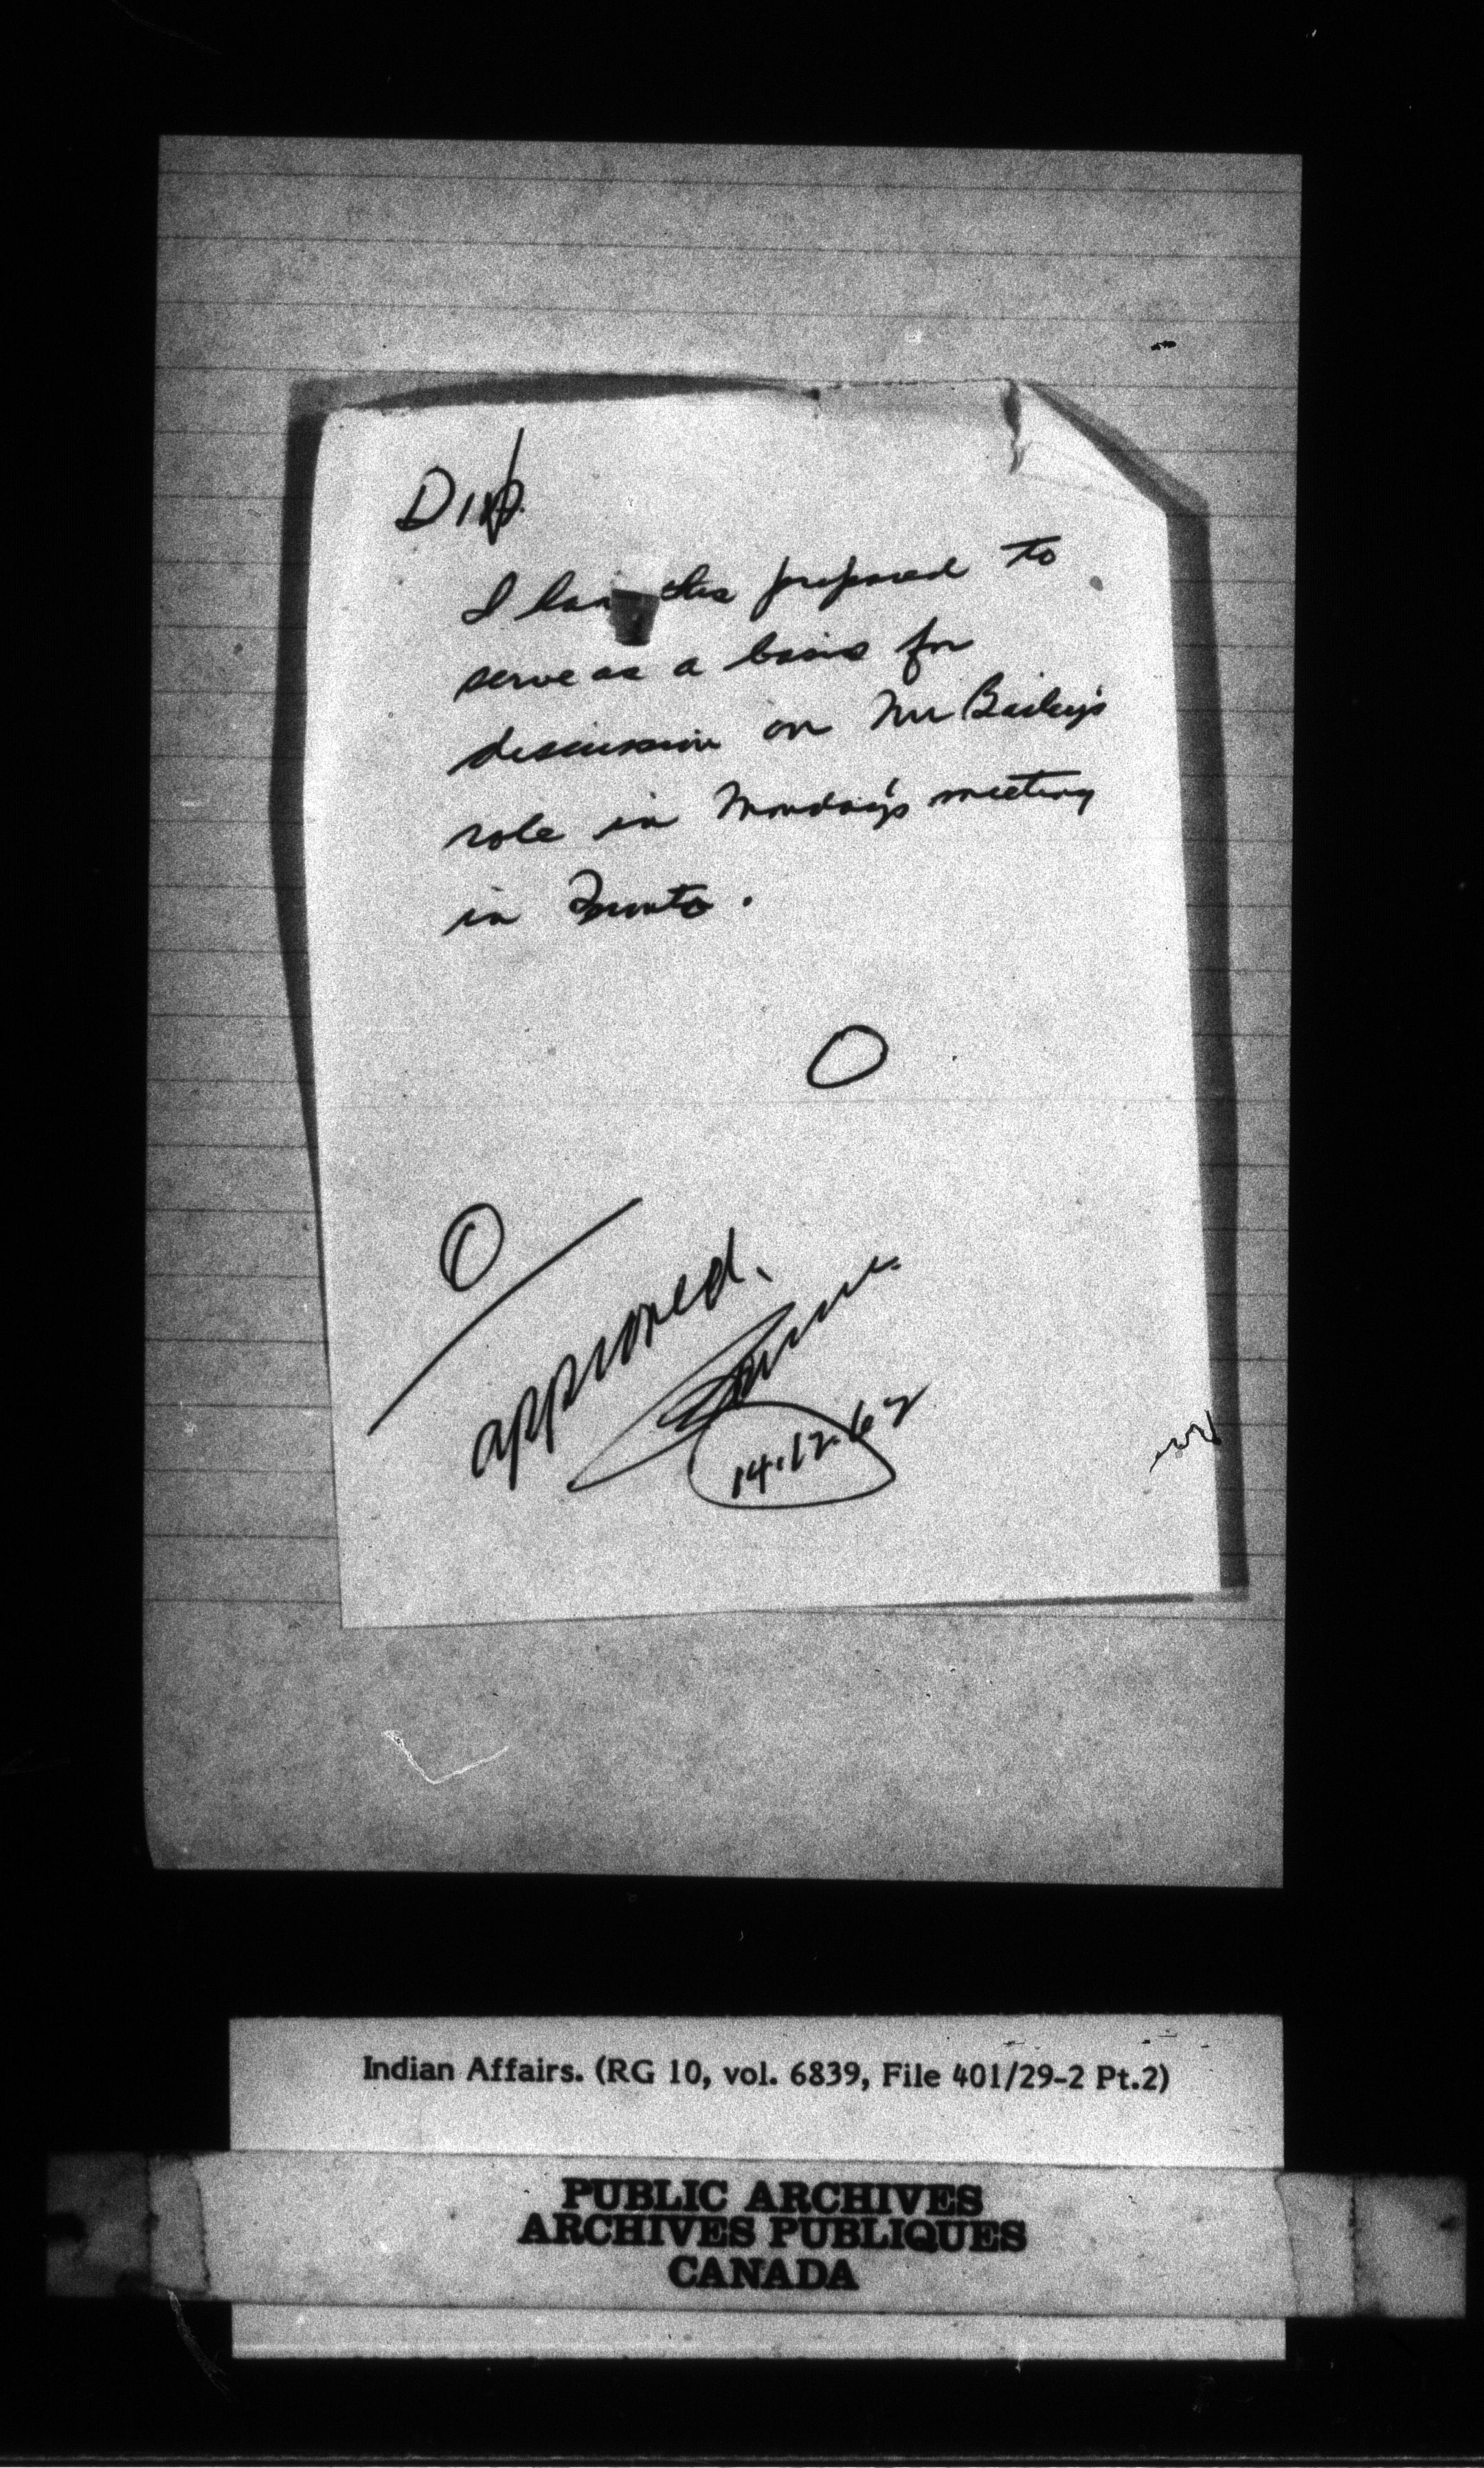 I ha this prepared to
serve as a basis for
discussion on Mr Bailey's
role in Monday's meeting
in Toronto.
approved.
14.12.62
Indian Affairs. (RG 10, vol. 6839, File 401/29-2 Pt.2)
PUBLIC ARCHIVES
ARCHIVES PUBLIQUES
CANADA